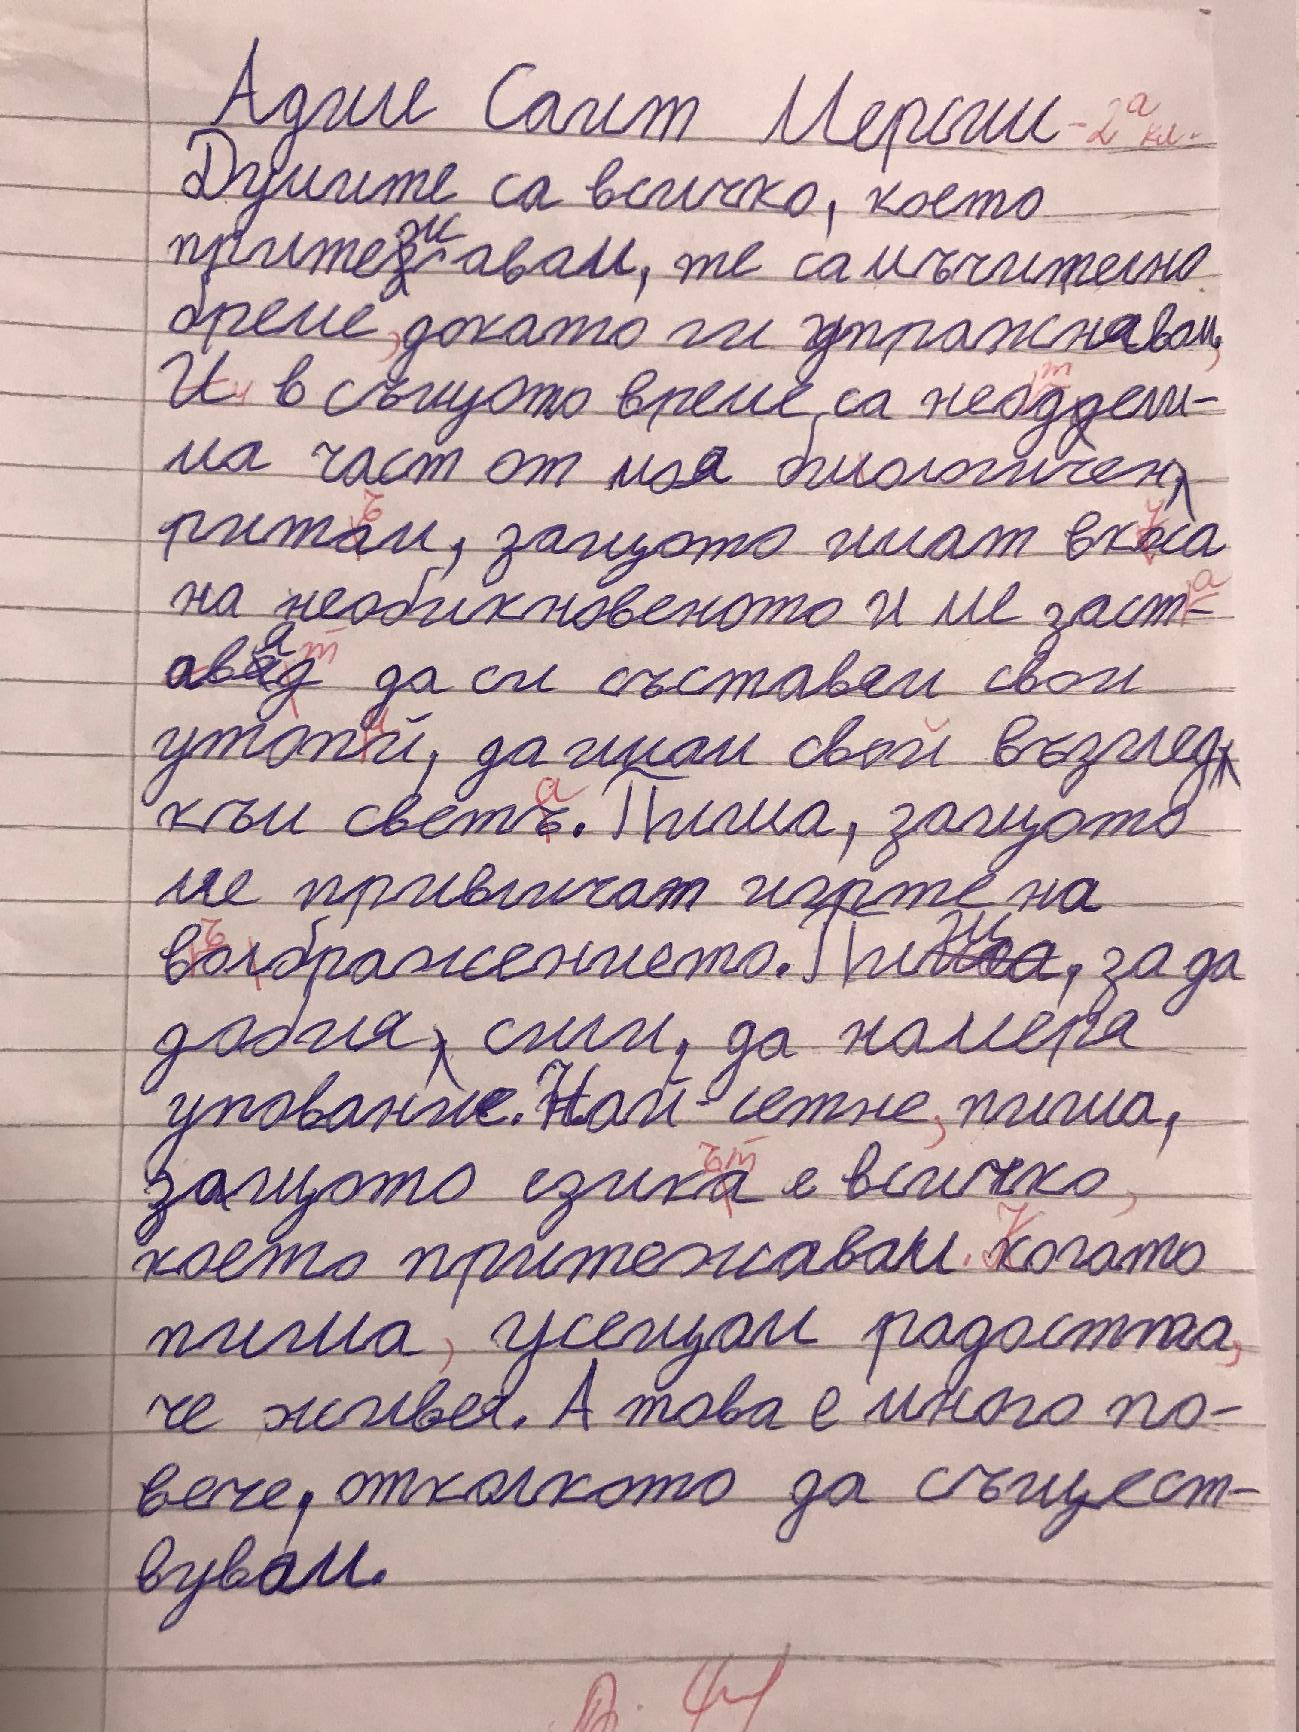 Адпие Саит Мерсин - 2а кл.
Думите са всичко, което
притежавам, те са мъчително
бреме, докато ги упражнавам,
И в същото време са неотдели-
ма част от моя биологичен,
ритъм, защото имат вкуса
на необикновеното и ме заст-
ават да си съставям свои
утопии, да имам свой възглед,
към света. Пиша, защото
ме привличат игрте на
въображението. Пиша, за да
добия, сили, да намеря
упование. Най-сетне, пиша,
защото езикът е всичко,
което притежавам. Когато
пиша, усещам радостта,
че живея. А това е много по-
вече, отколкото да същест-
вувам.